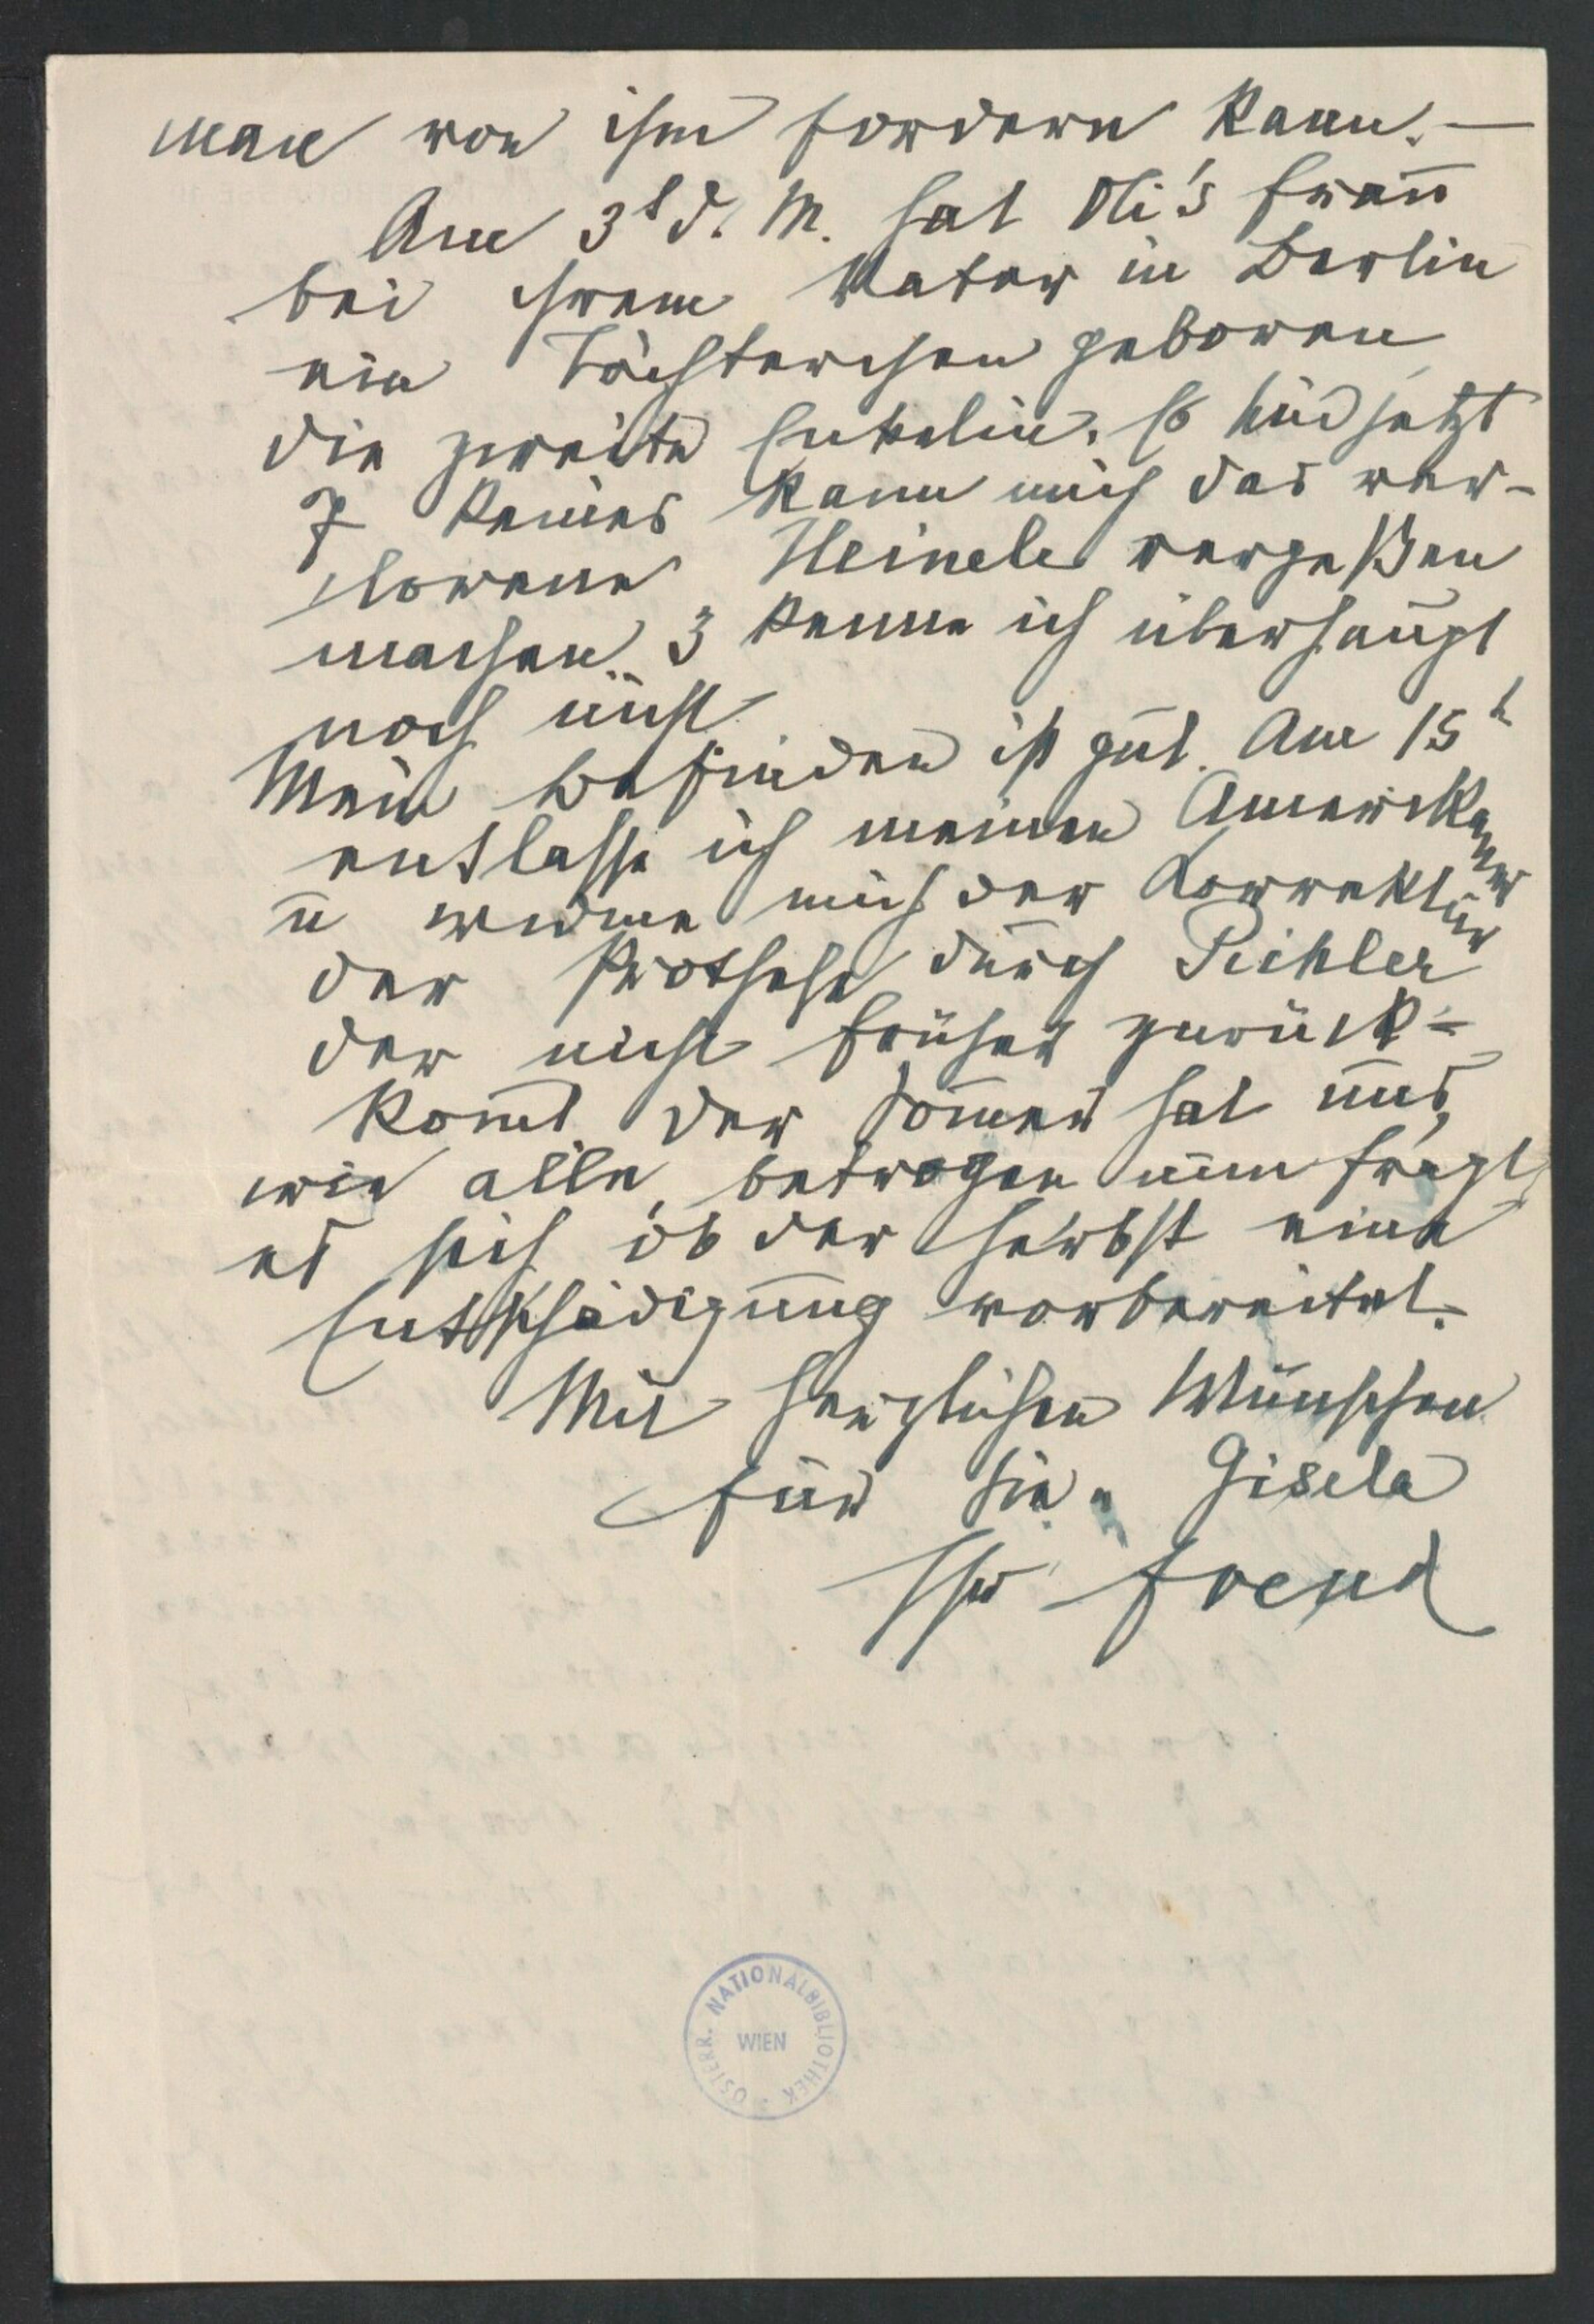 man von ihm fordern kann. —
Am 3t d. M. hat Oli's Frau
bei ihrem Vater in Berlin
ein Töchterchen geboren
die zweite Enkelin. Es sind jetzt
7 Keines kann mich das ver-
lorene Heinele vergeßen
machen. 3 kenne ich überhaupt
noch nicht.
Mein Befinden ist gut. Am 15t
entlasse ich meinen Amerikaner
u widme mich der Korrektur
der Prothese durch Pichler
der nicht früher zurück-
komt Der Somer hat uns,
wie alle, betrogen nun fragt
es sich ob der Herbst eine
Entschädigung vorbereitet.
Mit herzlichen Wünschen
für Sie u Gisela
Ihr Freud
ÖSTERR. NATIONALBIBLIOTHEK
WIEN